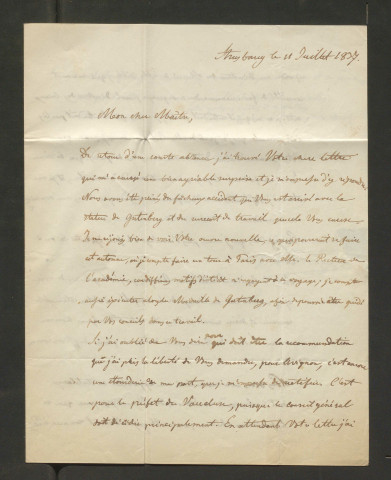 Strasbourg le 11 Juillet 1837.
Mon cher Maître,
De retour d'une courte absence j'ai trouvé Votre chère lettre
qui m'a causé une bien agréable surprise et je m'empresse d'y répondre.
Nous avons été peiné du fâcheux accident qui Vous est arrivé avec la
statue de Gutenberg et du surcroît de travail que cela Vous cause.
Je me réjouis bien de voir Votre œuvre nouvelle,
et autour, si je puis faire un tour à Paris avec elle. Le Recteur de
l'académie, voyage; je compte
Médaille de Gutenberg,
par Vos conseils dans ce travail.
Si j'ai oublié de Vous dire pour qui doit être la recommandation
que j'ai pris la liberté de Vous demander, pour Avignon, c'est encore
une étourderie de ma part, C'est
pour le préfet de Vaucluse, puisque le conseil général
doit décider principalement. En attendant Votre lettre j'ai